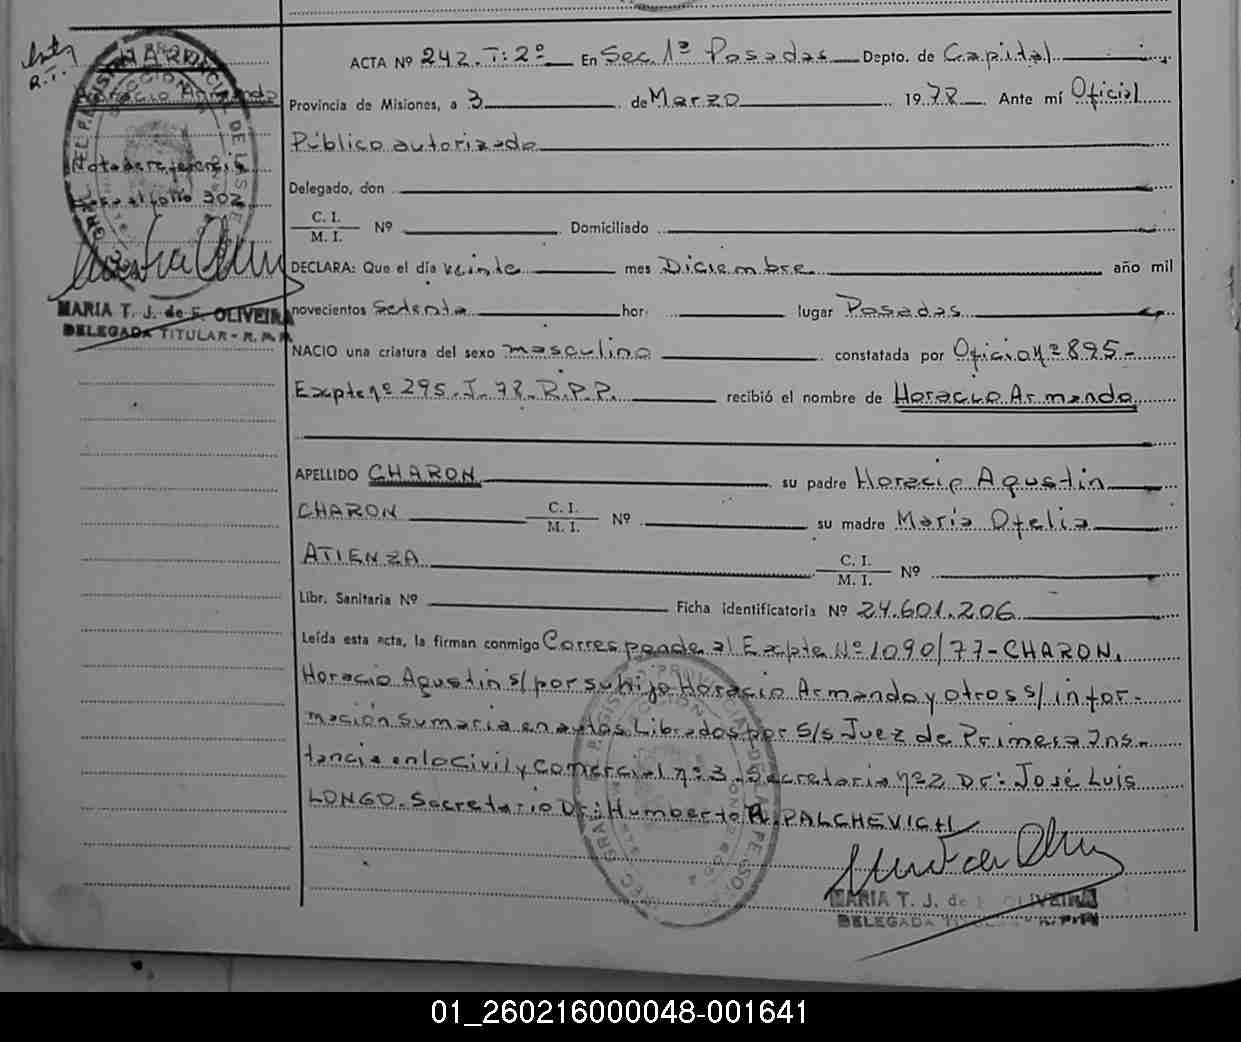 CHARON
Horacio Armando
Nota de referencia
302
MARIA T. J. de F. OLIVEIRA
DELEGADA TITULAR - R.P.P.
ACTA Nº 242. T: 2º En Sec. 1ª Posadas Depto. de Capital
Provincia de Misiones, a 3 de Marzo 1978 Ante mí Oficial
Público autorizado
Delegado, don
C. I.
M. I. Nº Domiciliado
DECLARA: Que el día veinte mes Diciembre año mil
novecientos Setenta hor lugar Posadas
NACIO una criatura del sexo masculino constatada por Oficio nº 895-
Expte nº 295. J. 78. R.P.P. recibió el nombre de Horacio Armando
APELLIDO CHARON su padre Horacio Agustin
CHARON C. I. M. I. Nº su madre Maria Ofelia
ATIENZA C. I. M. I. Nº
Libr. Sanitaria Nº Ficha identificatoria Nº 24.601.206
Leída esta acta, la firman conmigo Corresponde al Expte Nº 1090/77-CHARON,
Horacio Agustin s/por su hijo Horacio Armando y otros s/infor-
mación Sumaria en autos Librados por S/S Juez de Primera Ins-
tancia en lo Civil y Comercial nº 3. Secretaria nº 2 Dr: José Luis
LONGO. Secretario Dr: Humberto A. PALCHEVICH
MARIA T. J. de F. OLIVEIRA
DELEGADA TITULAR - R.P.P.
01_260216000048-001641